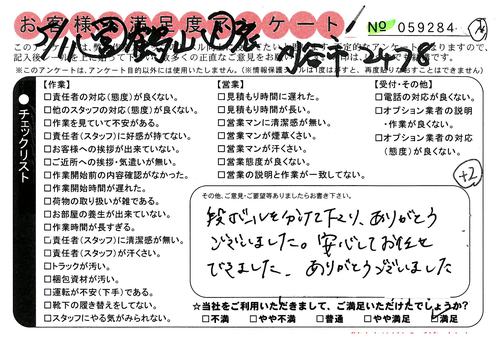 お客様の満足度アンケート
No 059284
記入後シールを上に貼って
※このアンケートは、アンケート目的以外には使用いたしません。(※情報保護シールは1度はがすと、再度貼りつけることはできません)
チェックリスト
【作業】
□責任者の対応(態度)が良くない。
□他のスタッフの対応(態度)が良くない。
□作業を見ていて不安がある。
□責任者(スタッフ)に好感が持てない。
□お客様への挨拶が出来ていない。
□ご近所への挨拶・気遣いが無い。
□作業開始前の内容確認がなかった。
□作業開始時間が遅れた。
□荷物の取り扱いが雑である。
□お部屋の養生が出来ていない。
□作業時間が長すぎる。
□責任者(スタッフ)に清潔感が無い。
□責任者(スタッフ)が汗くさい。
□トラックが汚い。
□梱包資材が汚い。
□運転が不安(下手)である。
□靴下の履き替えをしてない。
□スタッフにやる気がみられない。
【営業】
□見積もり時間に遅れた。
□見積もり時間が長い。
□営業マンに清潔感が無い。
□営業マンが煙草くさい。
□営業マンが汗くさい。
□営業態度が良くない。
□営業の説明と作業が一致してない。
【受付・その他】
□電話の対応が良くない。
□オプション業者の説明
・作業が良くない。
□オプション業者の対応
(態度)が良くない。
+2
その他、ご意見・ご要望等ありましたらお書き下さい。
段ボールを分けて下さり、ありがとう
ございました。安心してお任せ
できました。ありがとうございました
☆当社をご利用いただきまして、ご満足いただけたでしょうか?
□不満 □やや不満 □普通 □やや満足 □満足